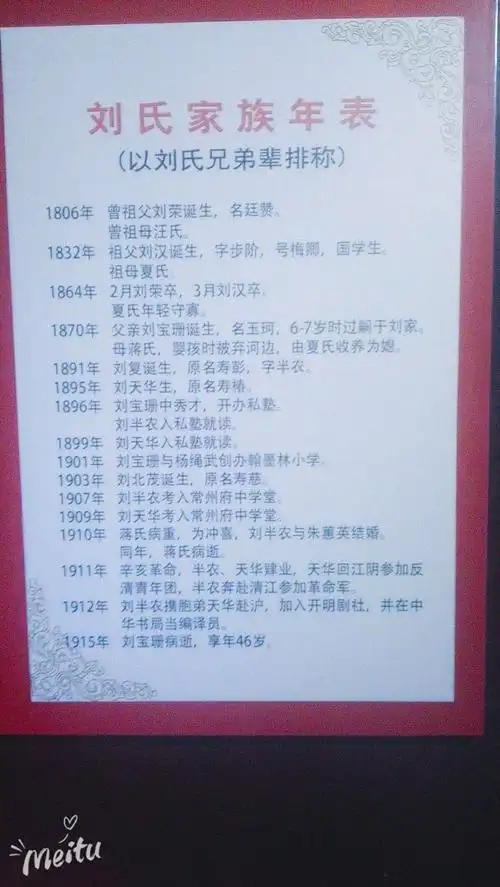 刘氏家族年表
（以刘氏兄弟辈排称）
1806年 曾祖父刘荣诞生，名廷赞。
曾祖母汪氏。
1832年 祖父刘汉诞生，字步阶，号梅卿，国学生。
祖母夏氏。
1864年 2月刘荣卒，3月刘汉卒。
夏氏年轻守寡。
1870年 父亲刘宝珊诞生，名玉珂，6-7岁时过嗣于刘家。
母蒋氏，婴孩时被弃河边，由夏氏收养为媳。
1891年 刘复诞生，原名寿彭，字半农。
1895年 刘天华生，原名寿椿。
1896年 刘宝珊中秀才，开办私塾。
刘半农入私塾就读。
1899年 刘天华入私塾就读。
1901年 刘宝珊与杨绳武创办翰墨林小学。
1903年 刘北茂诞生，原名寿慈。
1907年 刘半农考入常州府中学堂。
1909年 刘天华考入常州府中学堂。
1910年 蒋氏病重，为冲喜，刘半农与朱蕙英结婚。
同年，蒋氏病逝。
1911年 辛亥革命，半农、天华肄业，天华回江阴参加反
清青年团，半农奔赴清江参加革命军。
1912年 刘半农携胞弟天华赴沪，加入开明剧社，并在中
华书局当编译员。
1915年 刘宝珊病逝，享年46岁。
Meitu